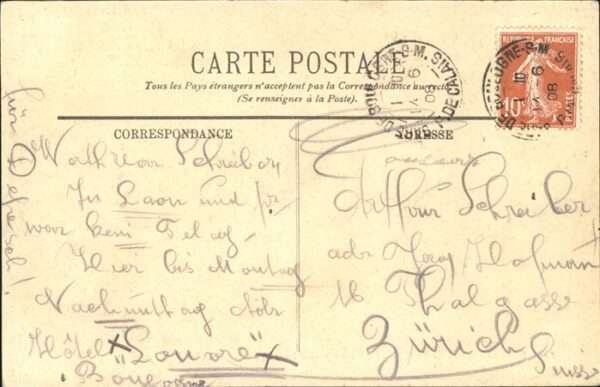 CARTE POSTALE
Tous les Pays étrangers n'acceptent pas la Correspondance au recto
(Se renseigner à la Poste).
CORRESPONDANCE
ADRESSE
RÉPUBLIQUE FRANÇAISE
10
PAS DE CALAIS
für Depesch!
Schreiber
In Laon und
war kein Telag.
Hier bis Montag
Nachmittag
Hôtel "Louvre"
Arthur Schreiber
adr Hofmann
16 Thalgasse
Zürich
Suisse